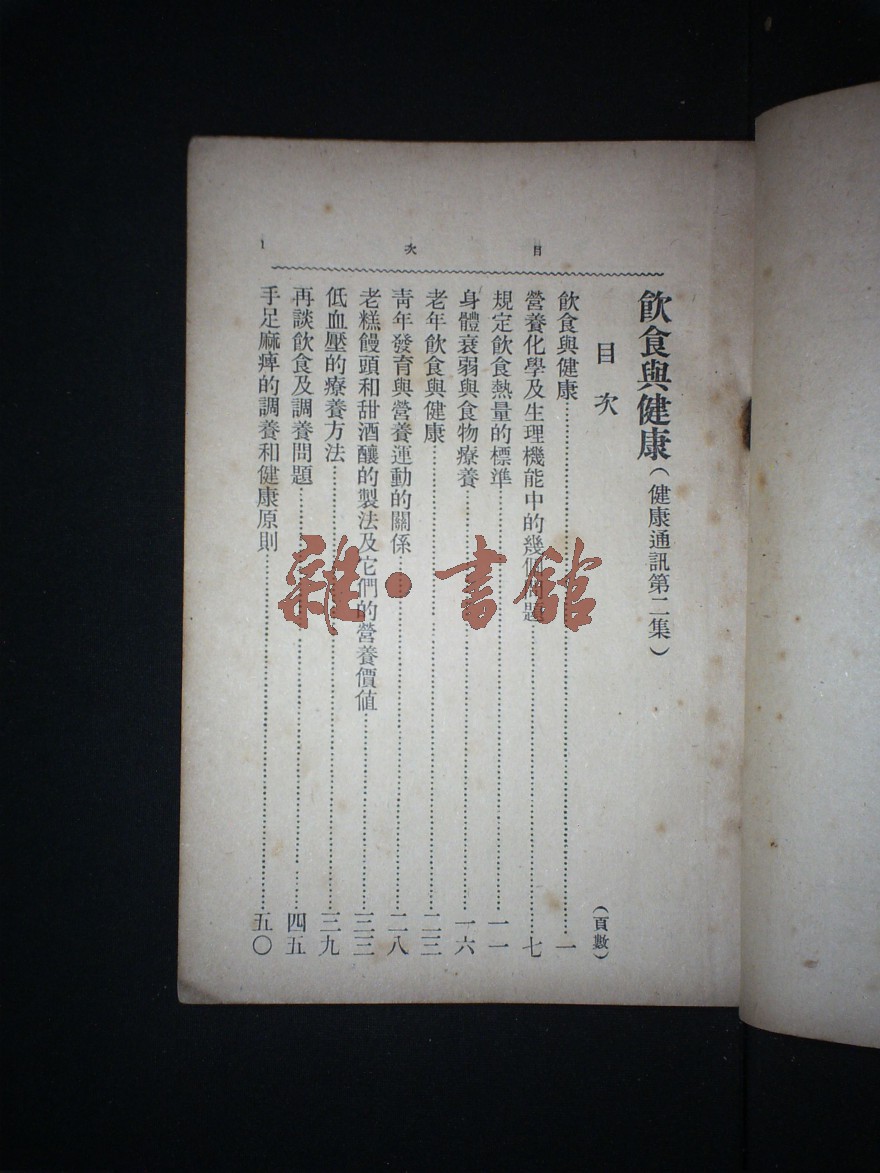 目次 1
飲食與健康（健康通訊第二集）
目次 （頁數）
飲食與健康……一
營養化學及生理機能中的幾個問題……七
規定飲食熱量的標準……一一
身體衰弱與食物療養……一六
老年飲食與健康……二三
靑年發育與營養運動的關係……二八
老糕饅頭和甜酒釀的製法及它們的營養價值……三三
低血壓的療養方法……三九
再談飲食及調養問題……四五
手足麻痺的調養和健康原則……五〇
雜·書館